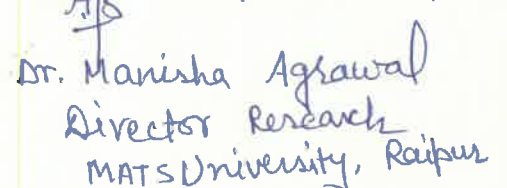 Dr. Manisha Agrawal
Director Research
MATS University, Raipur